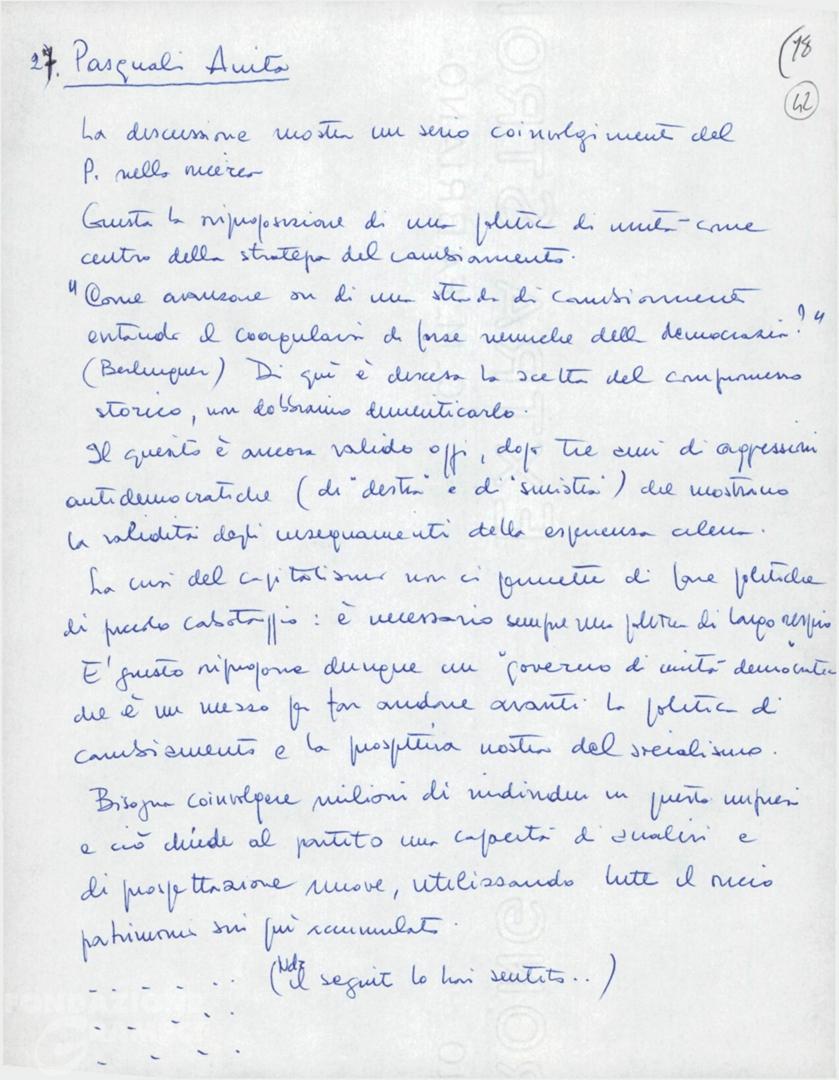 27. Pasquali Anita
(18
42
La discussione mostra un serio coinvolgimento del
P. nella ricerca
Giusta la riproposizione di una politica di unità come
centro della strategia del cambiamento.
"Come avanzare su di una strada di cambiamento
evitando il coagularsi di forze nemiche della democrazia?"
(Berlinguer) Di qui è discesa la scelta del compromesso
storico, non dobbiamo dimenticarlo.
Il quesito è ancora valido oggi, dopo tre anni di aggressioni
antidemocratiche (di "destra" e di "sinistra") che mostrano
la validità degli insegnamenti della esperienza cilena.
La crisi del capitalismo non ci permette di fare politiche
di piccolo cabotaggio: è necessario sempre una politica di largo respiro
E' giusto riproporre dunque un "governo di unità democratica
che è un mezzo per far andare avanti la politica di
cambiamento e la prospettiva nostra del socialismo.
Bisogna coinvolgere milioni di individui in questa impresa
e ciò chiede al partito una capacità di analisi e
di prospettazione nuove, utilizzando tutto il ricco
patrimonio sin qui accumulato.
. . . . . . (Ndr il seguito lo hai sentito..)
FONDAZIONE
GRAMSCI